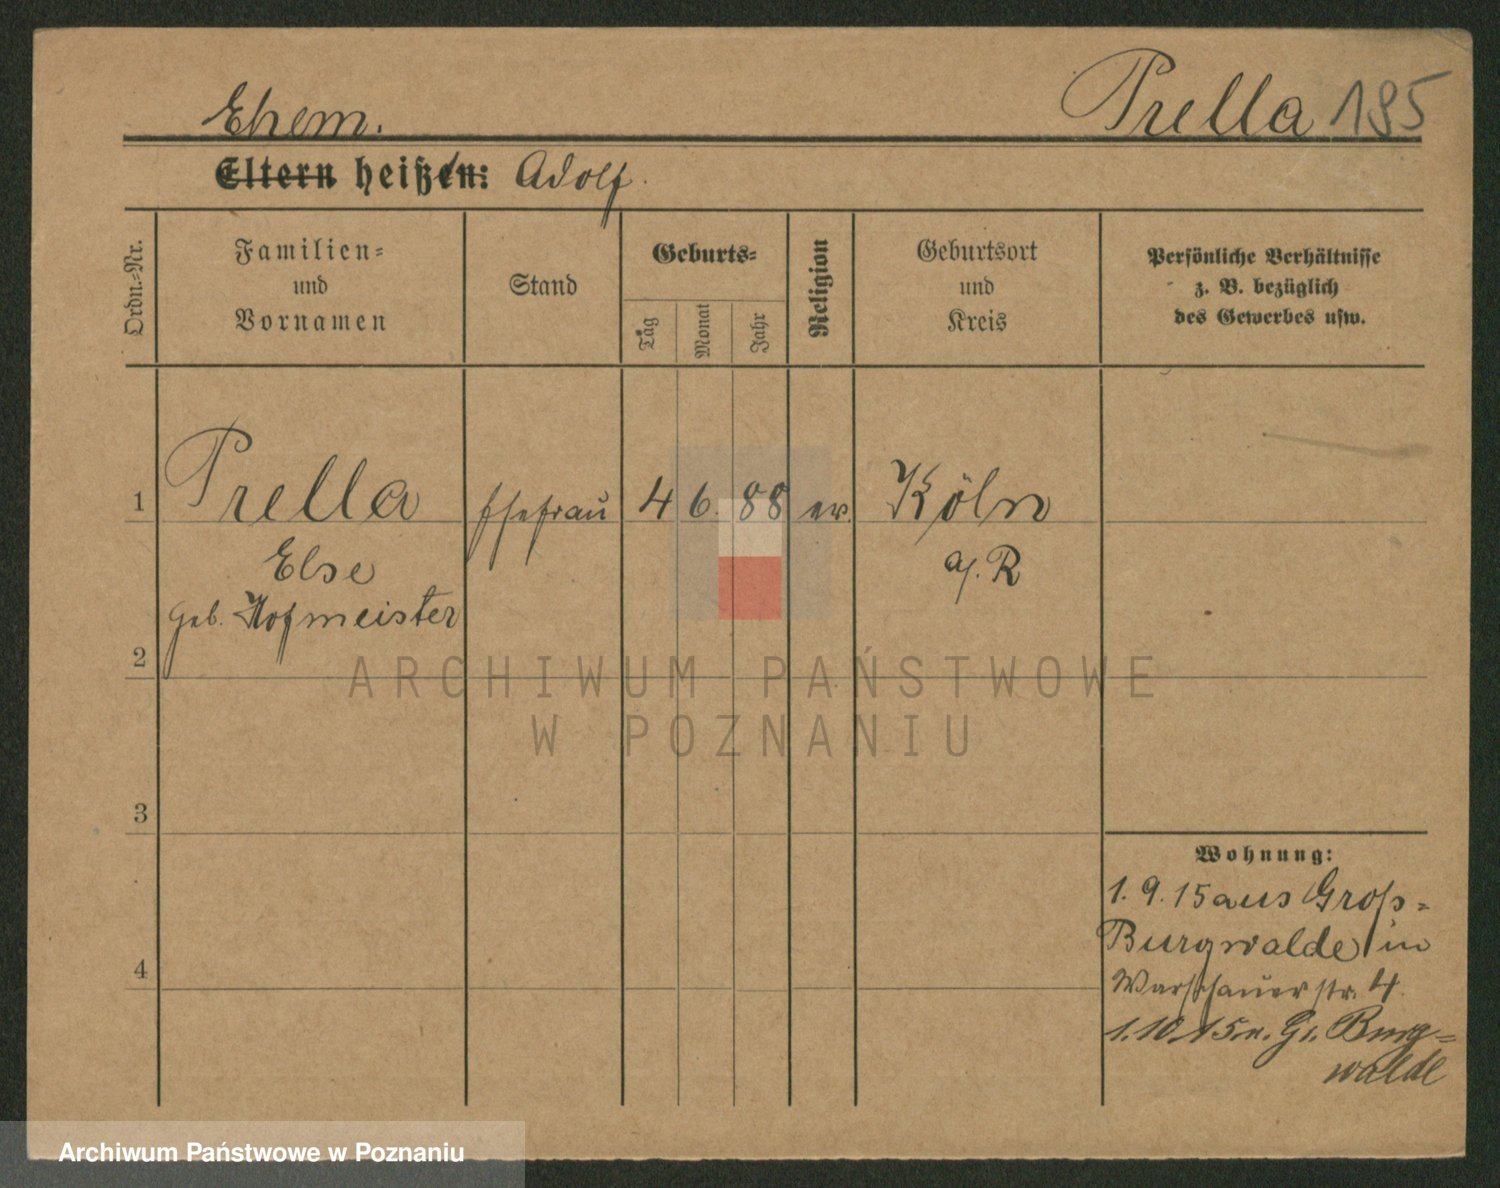 Ehem. Prella 195
Eltern heißen: Adolf.
Ordn.-Nr.
Familien-
und
Vornamen
Stand
Geburts-
Tag
Monat
Jahr
Religion
Geburtsort
und
Kreis
Persönliche Verhältnisse
z. B. bezüglich
des Gewerbes usw.
1 Prella Ehefrau 4 6. 88 ev. Köln
Else a/. R
geb. Hofmeister
2
3
4
Wohnung:
1. 9. 15 aus Groß-
Burgwalde in
Warschauer str. 4.
1.10.15 n. Gr. Burg-
walde
ARCHIWUM PAŃSTWOWE
W POZNANIU
Archiwum Państwowe w Poznaniu